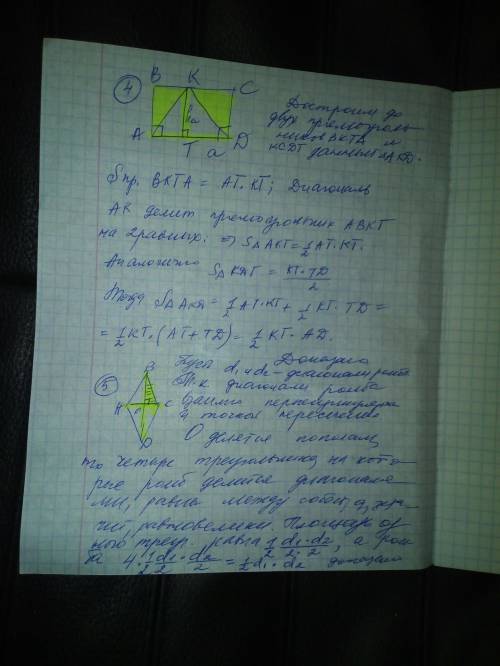 ④ B K C
A T a D
Достроим до
двух прямоуголь-
ников BKTA и
KCDT данный △AKD.
Sпр. BKTA = AT·KT; Диагональ
AK делит прямоугольник ABKT
на 2 равных: ⇒ S△AKT = 1/2 AT·KT.
Аналогично S△KДT = KT·TD/2
Тогда S△AKД = 1/2 AT·KT + 1/2 KT·TD =
= 1/2 KT·(AT+TD) = 1/2 KT·AD.
Доказано
⑤ B Пусть d₁ и d₂ - диагонали ромба
Т.к диагонали ромба
A C взаимно перпендикулярны
и точкой пересечения
D O делятся пополам,
то четыре треугольника, на кото-
рые ромб делится диагоналя-
ми, равны между собой, а, зна-
чит равновелики. Площадь од-
ного треуг. равна 1/2 d₁/2·d₂/2, а ром-
ба 4·1/2 d₁/2·d₂/2 = 1/2 d₁·d₂ доказано